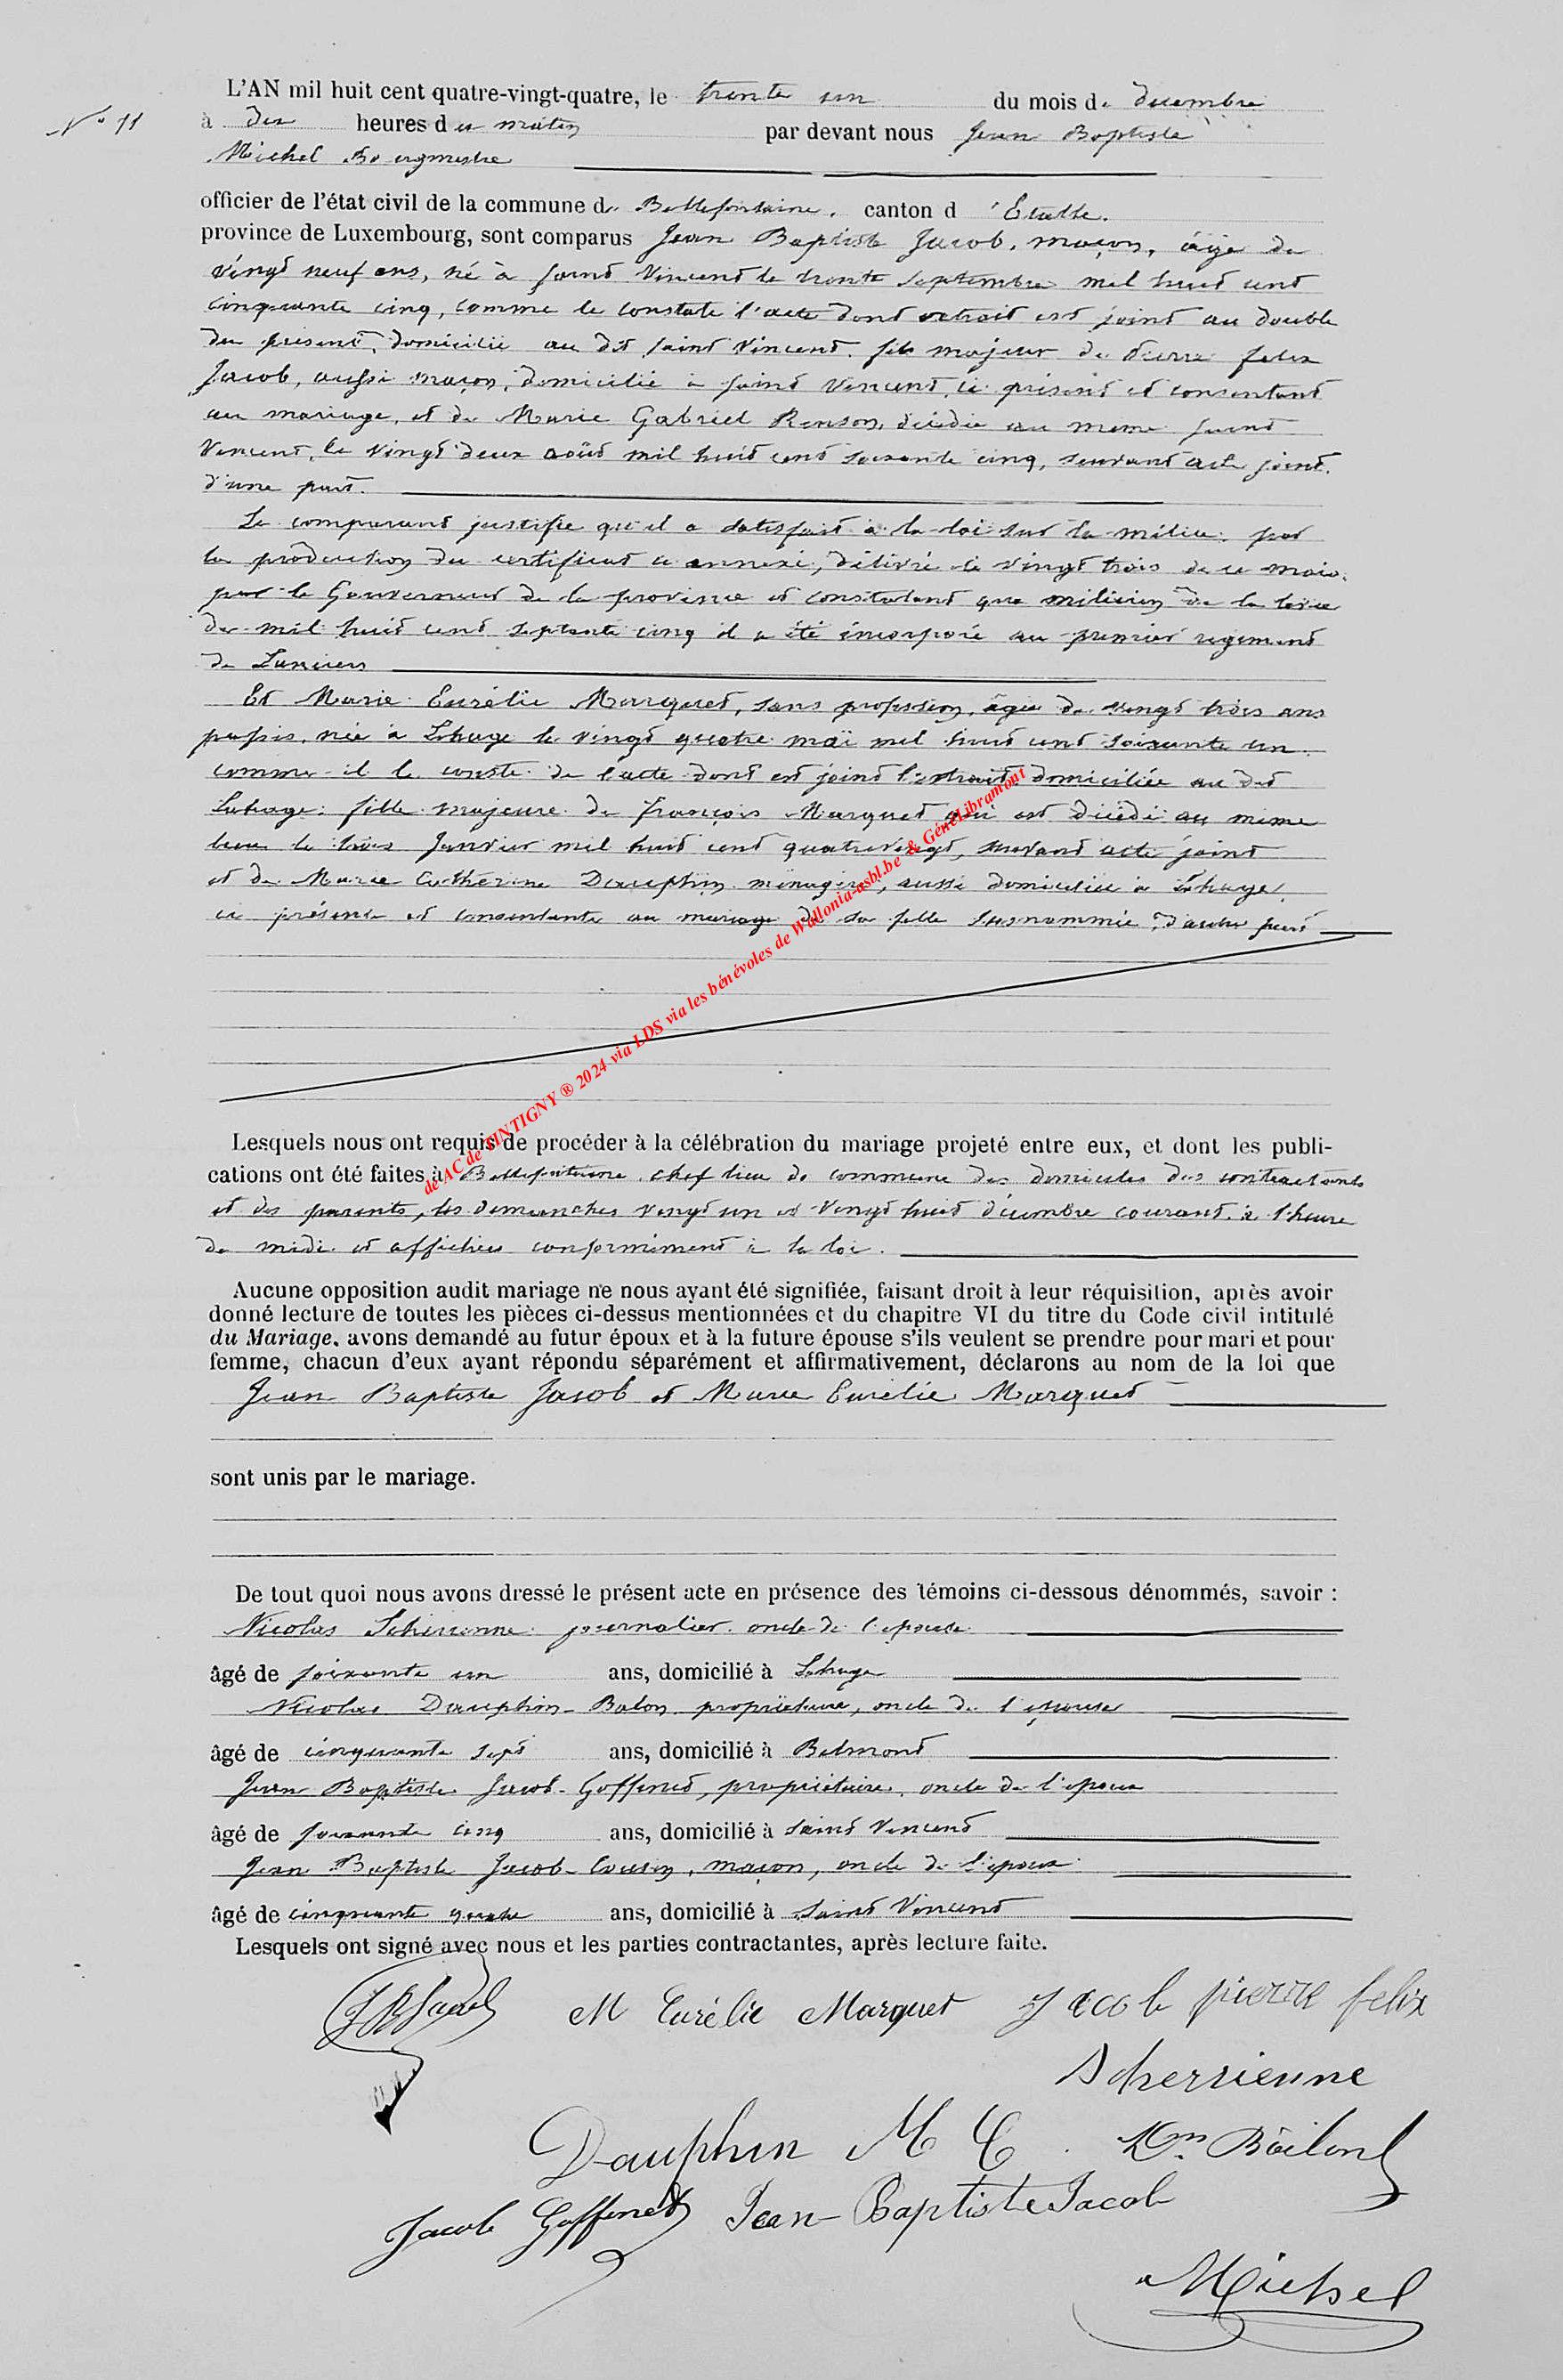 L'AN mil huit cent quatre-vingt-quatre, le trente un du mois de decembre
N° 11
à dix heures du matin par devant nous Jean Baptiste
Michel Bourgmestre
officier de l'état civil de la commune de Bellefontaine, canton d'Etalle.
province de Luxembourg, sont comparus Jean Baptiste Jacob, maçon, âgé de
vingt neuf ans, né à Saint Vincent le trente septembre mil huit cent
cinquante cinq, comme le constate l'acte dont extrait est joint au double
du présent, domicilié au dit Saint Vincent. fils majeur de Pierre felix
Jacob, aussi maçon, domicilié à Saint Vincent, ci présent et consentant
au mariage, et de Marie Gabriel Renson, décédée au meme Saint
Vincent, le vingt deux août mil huit cent soixante cinq, suivant acte joint.
d'une part.
Le comparant justifie qu'il a satisfait à la loi sur la milice par
la production du certificat ci annexé, délivré le vingt trois de ce mois,
par le Gouverneur de la province et constatant que milicien de la levée
de mil huit cent septante cinq il a été incorporé au premier regiment
de Lanciers
Et Marie Eurélie Marquet, sans profession, âgée de vingt trois ans
passés, née à Lahage le vingt quatre mai mil huit cent soixante un.
comme il le conste de l'acte dont est joint l'extrait, domiciliée au dit
Lahage: fille majeure de François Marquet qui est décédé au meme
lieu le trois Janvier mil huit cent quatrevingt, suivant acte joint
et de Marie Catherine Dauphin ménagère, aussi domiciliée à Lahage,
ci présente et consentante au mariage de sa fille susnommée, d'autre part
de AC de TINTIGNY ® 2024 via LDS via les bénévoles de Wallonia-asbl.be & GénéLibramont
Lesquels nous ont requis de procéder à la célébration du mariage projeté entre eux, et dont les publi-
cations ont été faites à Bellefontaine, chef lieu de commune des domiciles des contractants
et des parents, les dimanches vingt un et vingt huit décembre courant, à l'heure
de midi et affichées conformément à la loi.
Aucune opposition audit mariage ne nous ayant été signifiée, faisant droit à leur réquisition, après avoir
donné lecture de toutes les pièces ci-dessus mentionnées et du chapitre VI du titre du Code civil intitulé
du Mariage, avons demandé au futur époux et à la future épouse s'ils veulent se prendre pour mari et pour
femme, chacun d'eux ayant répondu séparément et affirmativement, déclarons au nom de la loi que
Jean Baptiste Jacob et Marie Eurélie Marquet
sont unis par le mariage.
De tout quoi nous avons dressé le présent acte en présence des témoins ci-dessous dénommés, savoir :
Nicolas journalier oncle de l'épouse
âgé de soixante un ans, domicilié à Lahage
Nicolas Dauphin-Balon propriétaire, oncle de l'épouse
âgé de cinquante sept ans, domicilié à Belmont
Jean Baptiste Jacob-Goffinet, propriétaire, oncle de l'époux
âgé de soixante cinq ans, domicilié à Saint Vincent
Jean Baptiste Jacob-Cousin, maçon, oncle de l'époux
âgé de cinquante quatre ans, domicilié à Saint Vincent
Lesquels ont signé avec nous et les parties contractantes, après lecture faite.
JBJacob M Eurélie Marquet Jacob pierre felix
Scherrienne
Dauphin M C.
Jacob Goffinet Jean-Baptiste Jacob
Michel